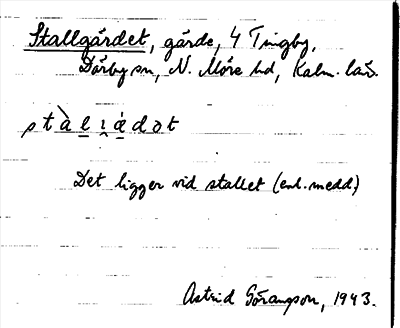 Stallgärdet, gärde, 4 Tingby,
Dörby sn, N. Möre hd, Kalm. län.
Det ligger vid stallet (enl. medd)
Astrid Göransson, 1943.